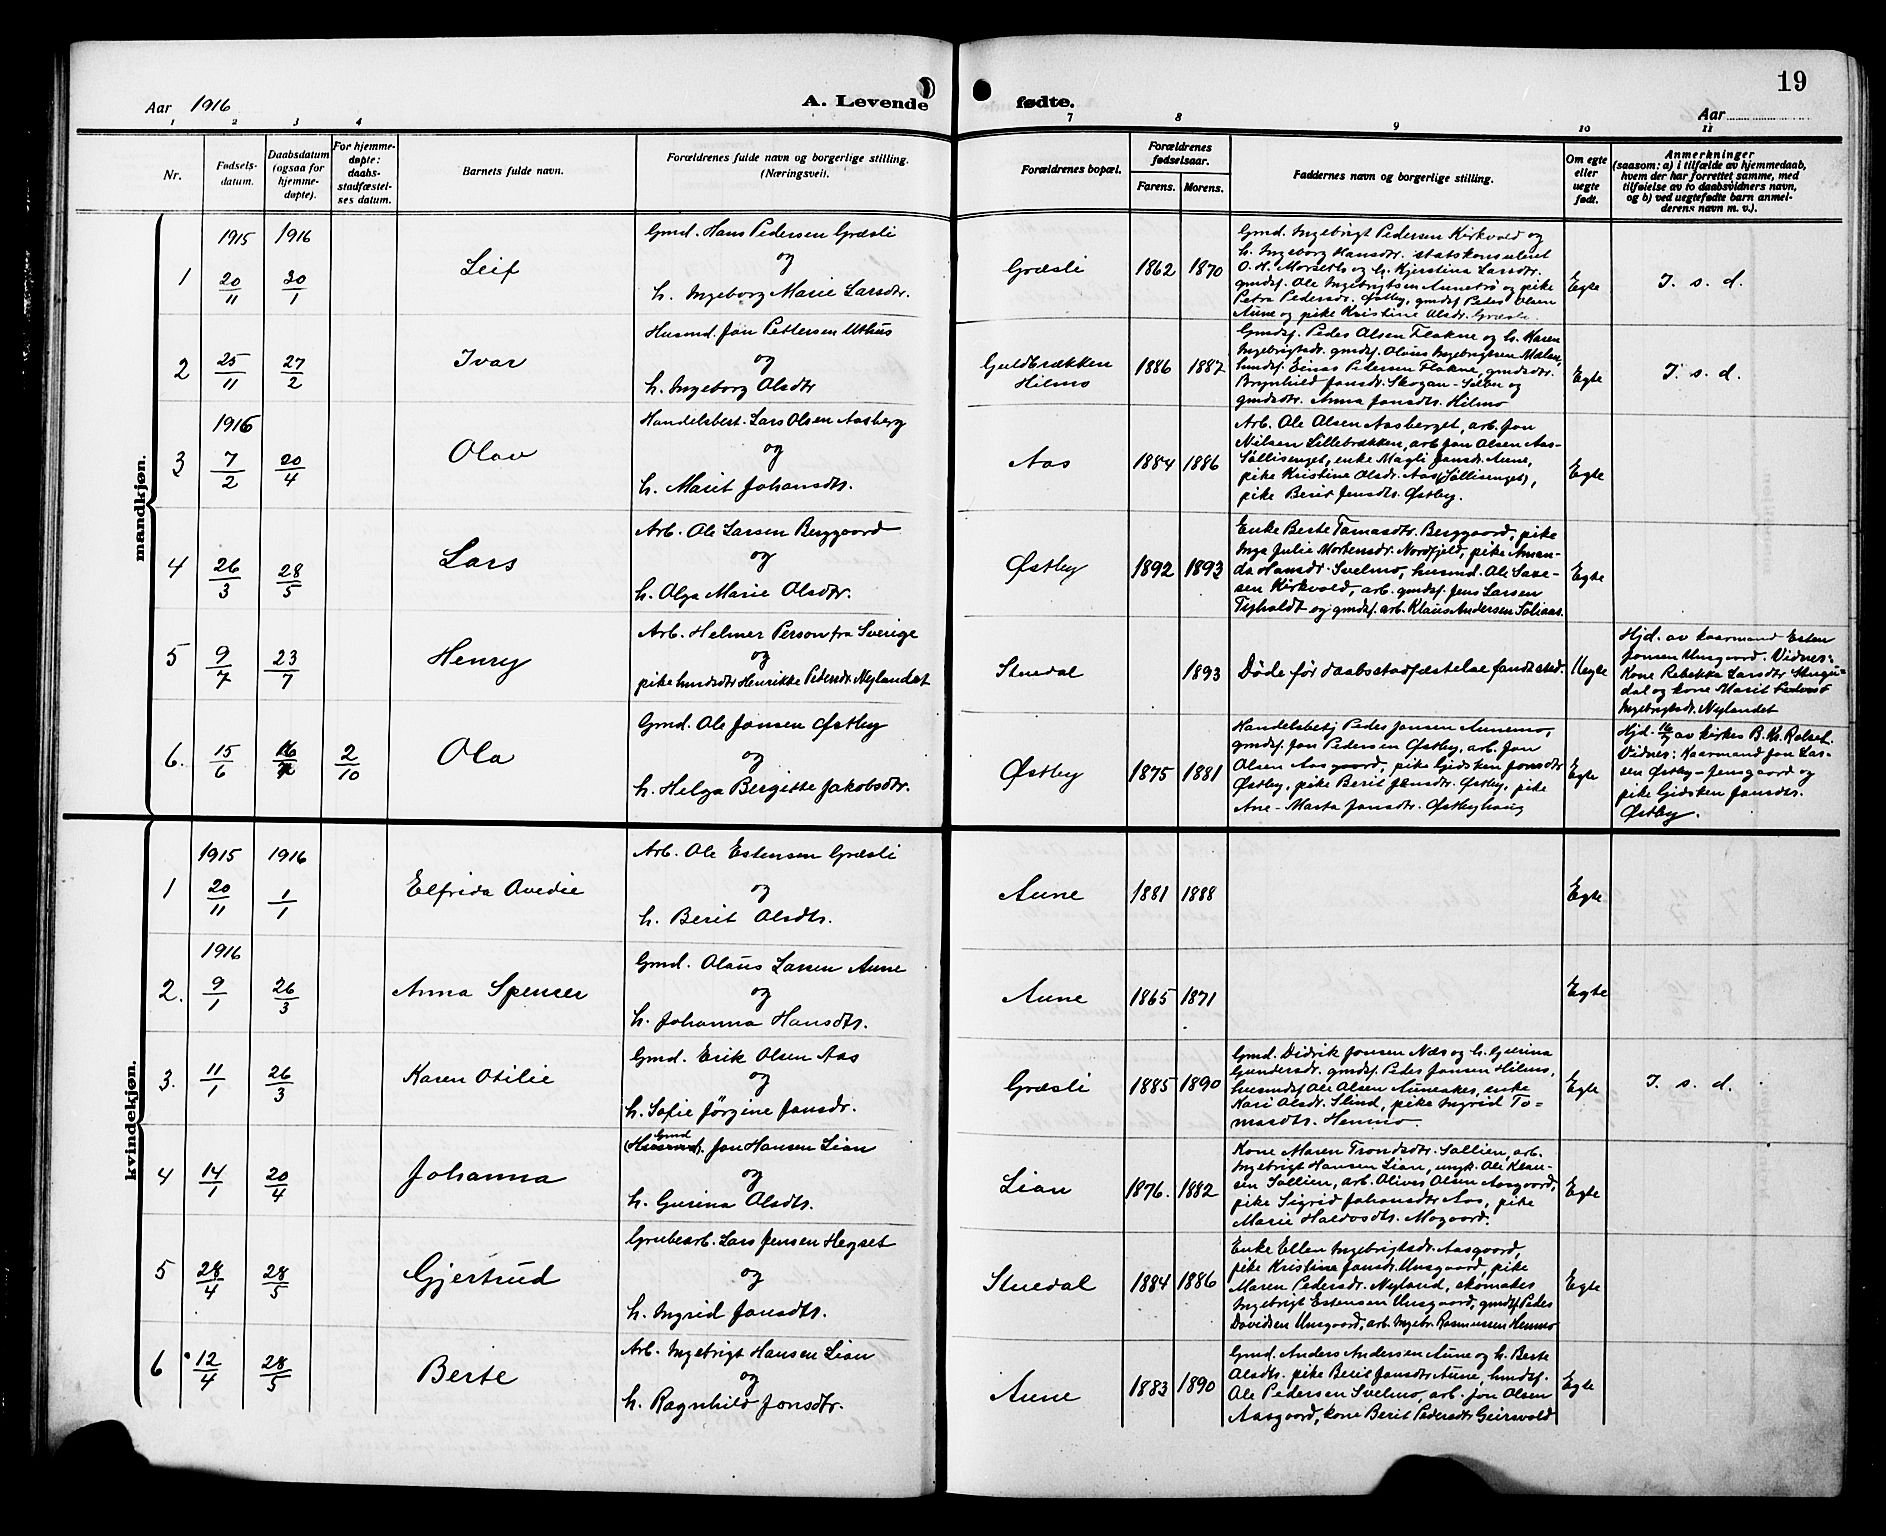 19
Aar 1916
A. Levende
fødte.
Aar
1 2 3 4
7 8 9 10 11
Nr.
Fødsels-
datum.
Daabsdatum
(ogsaa for
hjemme-
døpte).
For hjemme-
døpte:
daabs-
stadfæstel-
ses datum.
Barnets fulde navn.
Forældrenes fulde navn og borgerlige stilling.
(Næringsvei).
Forældrenes bopæl.
Forældrenes
fødselsaar.
Farens. Morens.
Faddernes navn og borgerlige stilling.
Om egte
eller
uegte
født.
Anmerkninger
(saasom: a) i tilfælde av hjemmedaab,
hvem der har forrettet samme, med
tilføielse av to daabsvidners navn,
og b) ved uegtefødte barn anmel-
derens navn m. v.).
mandkjøn.
1915 1916
1 20/11 30/1 Leif
Gmd. Hans Pedersen Græsli
og
h. Ingeborg Marie Larsdtr.
Græsli 1862 1870
Gmd. Ingebrigt Pedersen Kirkvold og
h. Ingeborg Hansdtr. statskonsulent
O. H. Morseth og h. Kjerstina Larsdtr.
gmdsf. Ole Ingebrigtsen Aunetrø og pike
Petra Pedersdr. Østby, gmdsf. Peder Olsen
Aune og pike Kristine Olsdr. Græsli.
Egte I. s. d.
2 25/11 27/2 Ivar
Husmd. Jon Pettersen Uthus
og
h. Ingeborg Olsdtr
Guldbrækken
Hilmo
1886 1887
Gmdsf. Peder Olsen Flakne og h. Karen
Ingebrigtsdr. gmdsf. Olaus Ingebrigtsen Mælan,
hmdsf. Einar Petersen Flakne, gmdsdtr.
Brynhild Jonsdr. Skogan-Selbu og
gmdsdtr. Anna Jonsdtr. Hilmo
Egte I. s. d.
1916
3 7/2 20/4 Olav
Handelsbest. Lars Olsen Aasberg
og
h. Marit Johansdtr.
Aas 1884 1886
Arb. Ole Olsen Aasberget, arb. Jon
Nilsen Lillebrækken, arb. Jon Olsen Aas-
Søllisenget, enke Magli Jonsdr. Aune,
pike Kristine Olsdr. Aas (Søllisenget),
pike Berit Jensdtr. Østby.
Egte
4 26/3 28/5 Lars
Arb. Ole Larsen Berggaard
og
h. Olga Marie Olsdtr.
Østby 1892 1893
Enke Berte Tomasdtr. Berggaard, pike
Inga Julie Mortensdr. Nordfjeld, pike Aman-
da Hansdr. Svelmo, husmd. Ole Lar-
sen Kirkvold, arb. gmdsf. Jens Larsen
Tyholdt og gmdsf. arb. Klaus Andersen Soliaas.
Egte
5 9/7 23/7 Henry
Arb. Helmer Person fra Sverige
og
pike hmdsdtr Henrikke Pedersdr. Nylandet
Stuedal 1893
Døde før daabsstadfæstelse fandt sted.
Uegte
Hjd. av kaarmand Esten
Jonsen Unsgaard. Vidner:
Kone Rebekka Larsdtr Stugu-
dal og kone Marit
Ingebrigtsdr. Nylandet
6. 15/6 16/7 2/10 Ola
Gmd. Ole Jonsen Østby
og
h. Helga Bergitte Jakobsdtr.
Østby 1875 1881
Handelsbetj Peder Jonsen Aunemo,
gmdsf. Jon Pedersen Østby, arb. Jon
Olsen Aasgaard, pike Gidsken Jonsdtr
Østby, pike Berit Jonsdtr. Østby, pike
Ane-Marta Jonsdtr. Østbyhaug
Egte
Hjd. 16/7 av kirkes. B. Kr. Rolset.
Vidner: Kaarmand Jon Lar-
sen Østby-Jensgaard og
pike Gidsken Jonsdtr.
Østby.
kvindekjøn.
1915 1916
1 20/11 1/1 Elfrida Ovedie
Arb. Ole Estensen Græsli
og
h. Berit Olsdtr.
Aune 1881 1888 Egte
1916
2. 9/1 26/3 Anna Spenser
Gmd. Olaus Larsen Aune
og
h. Johanna Hansdtr.
Aune 1865 1871 Egte
3. 11/1 26/3 Karen Otilie
Gmd. Erik Olsen Aas
og
h. Sofie Jørgine Jonsdr.
Græsli 1885 1890
Gmd. Didrik Jonsen Næs og h. Gurina
Gundersdr. gmdsf. Peder Jonsen Hilmo,
husmdsf Ole Olsen Auneaker, enke
Kari Olsdr. Slind, pike Ingrid To-
masdtr. Hemmo.
Egte I. s. d.
4 14/1 20/4 Johanna
Gmd
(Husmand). Jon Hansen Lian
og
h. Gurina Olsdtr.
Lian 1876. 1882
Kone Maren Trondsdtr. Sollien, arb.
Ingebrigt Hansen Lian, ungk. Ole Klau-
sen Sollien, arb. Oliver Olsen Aasgaard,
pike Sigrid Johansdtr Aas, pike
Marie Haldosdtr. Mogaard.
Egte
5 28/4 28/5 Gjertrud
Grubearb. Lars Jensen Hegset
og
h. Ingrid Jonsdtr.
Stuedal 1884 1886
Enke Ellen Ingebrigtsdr. Aasgaard,
pike Kristine Jonsdr. Unsgaard, pike
Maren Pedersdr. Nyland, skomaker
Ingebrigt Estensen Unsgaard, gmdsf Peder
Davidsen Unsgaard, arb. Ingebr. Rasmussen Hemmo
Egte
6 12/4 28/5 Berte
Arb. Ingebrigt Hansen Lian
og
h. Ragnhild Jonsdtr.
Aune 1883 1890
Gmd. Anders Andersen Aune og h. Berte
Olsdtr. pike Berit Jonsdtr Aune, hmdsf.
Ole Pedersen Svelmo, arb. Jon Olsen
Aasgaard, kone Berit Pedersdtr Geirsvold
Egte